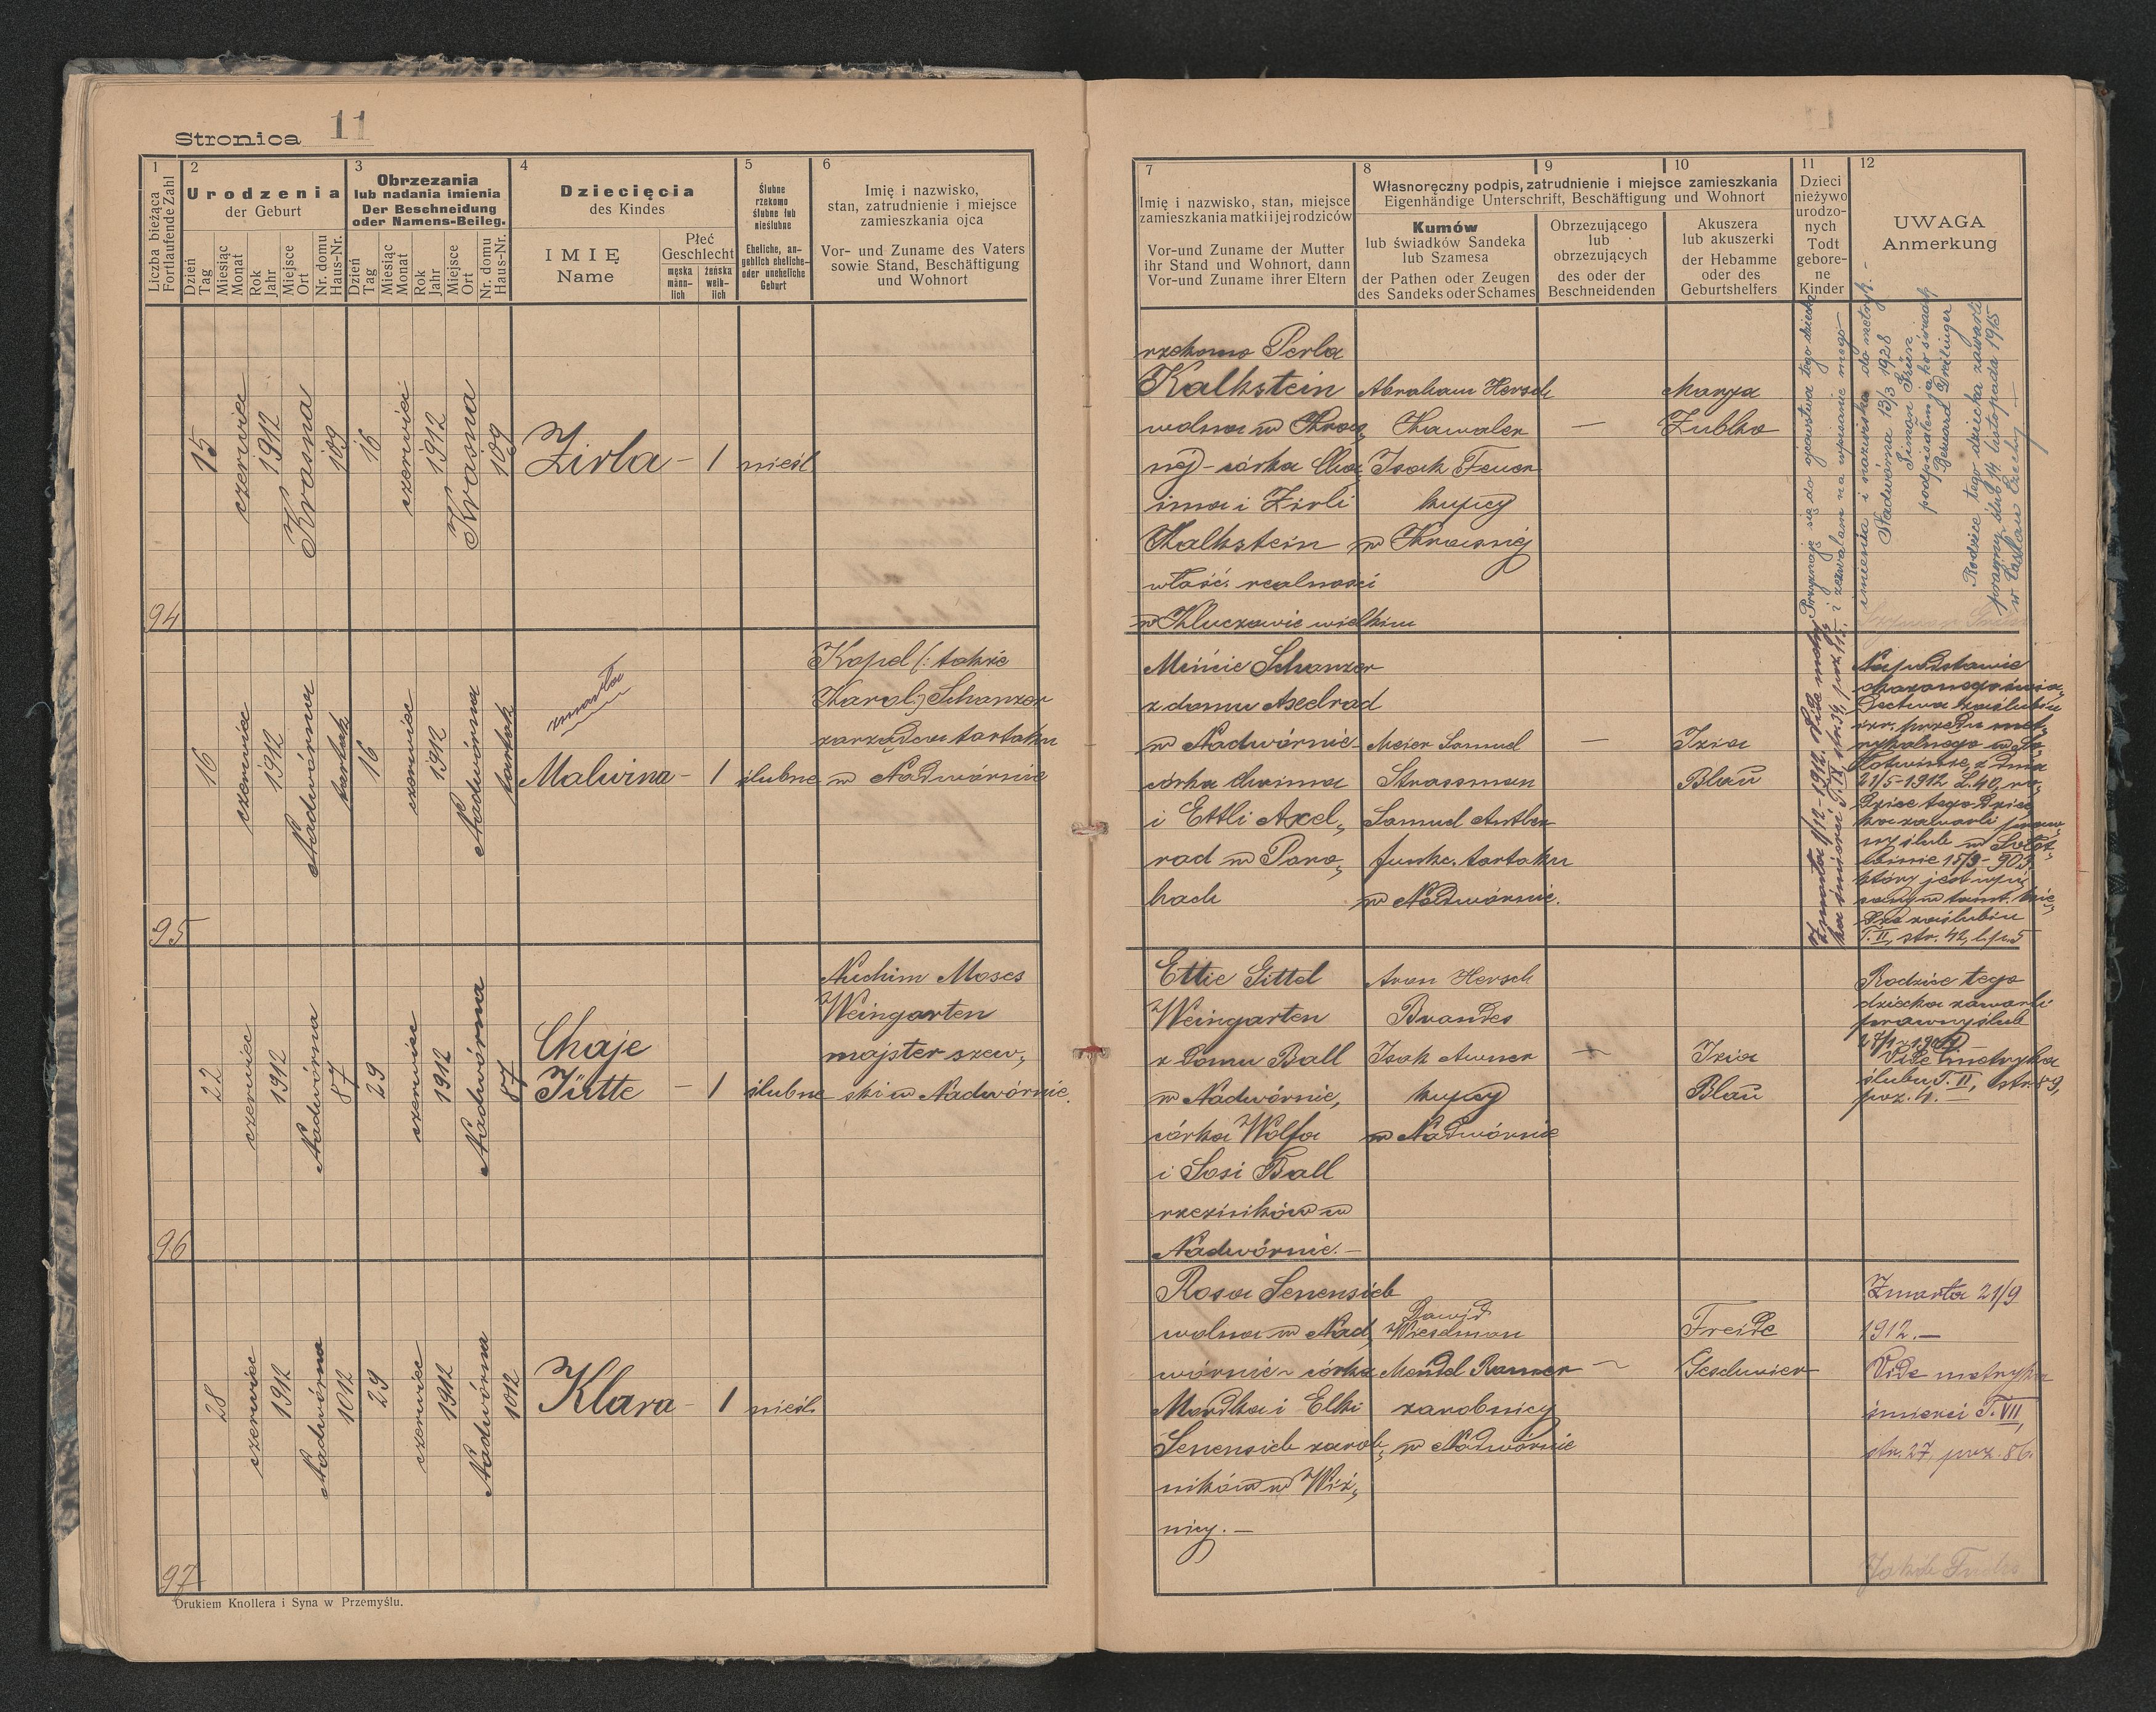 Stronica 11
1
2
3
4
5
6
Liczba bieżąca
Fortlaufende Zahl
Urodzenia
der Geburt
Obrzezania
lub nadania imienia
Der Beschneidung
oder Namens-Beileg.
Dziecięcia
des Kindes
Ślubne
rzekomo
ślubne lub
nieślubne
Eheliche, an-
geblich eheliche-
oder uneheliche
Geburt
Imię i nazwisko,
stan, zatrudnienie i miejsce
zamieszkania ojca
Vor- und Zuname des Vaters
sowie Stand, Beschäftigung
und Wohnort
Dzień
Tag
Miesiąc
Monat
Rok
Jahr
Miejsce
Ort
Nr. domu
Haus-Nr.
Dzień
Tag
Miesiąc
Monat
Rok
Jahr
Miejsce
Ort
Nr. domu
Haus-Nr.
IMIĘ
Name
Płeć
Geschlecht
męska
männ-
lich
żeńska
weib-
lich
94
15
czerwiec
1912
Krasna
109
16
czerwiec
1912
Krasna
109
Zirla - 1 nieśl
95
16
czerwiec
1912
Nadwórna
tartak
16
czerwiec
1912
Nadwórna
tartak
zmarła
Malwina - 1 ślubne
Kopel (: także
Karol :) Schanzer
zarządca tartaku
w Nadwórnie
96
22
czerwiec
1912
Nadwórna
87
29
czerwiec
1912
Nadwórna
87
Chaje
Jütte - 1 ślubne
Nuchim Moses
Weingarten
majster szew„
ski w Nadwórnie.
97
28
czerwiec
1912
Nadwórna
1012
29
czerwiec
1912
Nadwórna
1012
Klara - 1 nieśl.
Drukiem Knollera i Syna w Przemyślu.
7
8
9
10
11
12
Imię i nazwisko, stan, miejsce
zamieszkania matki i jej rodziców
Vor-und Zuname der Mutter
ihr Stand und Wohnort, dann
Vor-und Zuname ihrer Eltern
Własnoręczny podpis, zatrudnienie i miejsce zamieszkania
Eigenhändige Unterschrift, Beschäftigung und Wohnort
Kumów
lub świadków Sandeka
lub Szamesa
der Pathen oder Zeugen
des Sandeks oder Schames
Obrzezującego
lub
obrzezujących
des oder der
Beschneidenden
Akuszera
lub akuszerki
der Hebamme
oder des
Geburtshelfers
Dzieci
nieżywo
urodzo-
nych
Todt
gebore-
ne
Kinder
UWAGA
Anmerkung
rzekomo Perla
Kalkstein
wolna w Kras„
nej - córka Cha„
ima i Zirli
Kalkstein
właśc. realności
w Kluczowie wielkim
Abraham Hersch
Kawaler
Isak Feuer
kupcy
w Krasnej
—
Marya
Zubko
Przyznaję się do ojcowstwa tego dziecka
i zezwalam na wpisanie mego
imienia i nazwiska do metryk. -
Nadwórna 13/3 1928
podpisałem jako świadek
Rodzice tego dziecka zawarli
prawny ślub 14 listopada 1915
Mińcie Schanzer
z domu Axelrad
w Nadwórnie
córka Chaima
i Ettli Axel„
rad w Poro„
hach
Meier Samuel
Strassman
Samuel Antler
funkc. tartaku
w Nadwórnie.
—
Izia
Blau
Zmarła 1/12 - 1912. Vide metry„
ka śmierci
Na podstawie
T. II, str. 42, l.p. 5
Ettie Gittel
Weingarten
z domu Ball
w Nadwórnie,
córka Wolfa
i Sosi Ball
rzeźników w
Nadwórnie. —
Aron Hersch
Brandes
Isak Awner
kupcy
w Nadwórnie
—
Izia
Blau
Rodzice tego
dziecka zawarli
prawny ślub
Vide metryka
ślubu T. II, str. 89,
poz. 4. —
Rosa Senensieb
wolna w Nad„
wórnie - córka
Mordka i Elki
Senensieb zarob„
ników w Wiż„
nicy. —
Dawid
Wieselman
Mendel Ramer
zarobnicy
w Nadwórnie
—
Freide
Geschwier
Zmarła 21/9
1912. —
Vide metryka
śmierci T. VII,
str. 27, poz. 86.